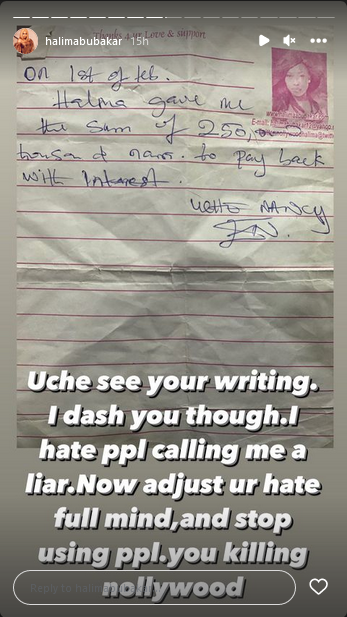 halimabubakar 15h
Thanks 4 ur Love & support
On 1st of feb.
Halima gave me
the sum of 250,000
thousand naira. to pay back
with Interest.
UCHE NANCY
Uche see your writing.
I dash you though.I
hate ppl calling me a
liar.Now adjust ur hate
full mind,and stop
using ppl.you killing
nollywood
Reply to halimabubakar